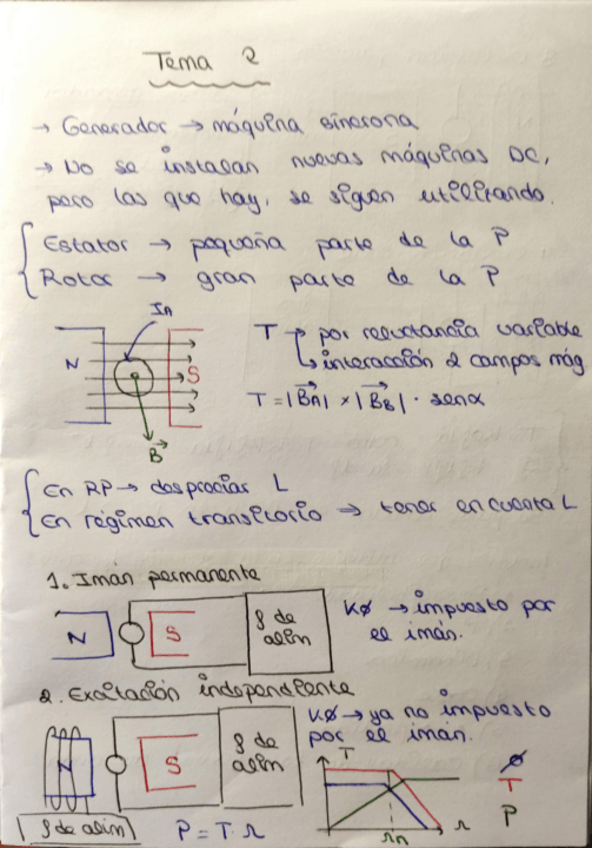 Tema 2
→ Generador → máquina síncrona
→ No se instalan nuevas máquinas DC,
pero las que hay, se siguen utilizando.
Estator → pequeña parte de la P
Rotor → gran parte de la P
In
N
S
B
T → por reluctancia variable
↳ interacción 2 campos mág
T = |BA| × |BB| · senα
En RP → despreciar L
En régimen transitorio → tener en cuenta L
1. Imán permanente
N
S
g de
alim
KØ → impuesto por
el imán.
2. Excitación independiente
N
S
g de
alim
g de alim
KØ → ya no impuesto
por el imán.
P = T · Ω
T
Ω
Ωn
Ø
T
P